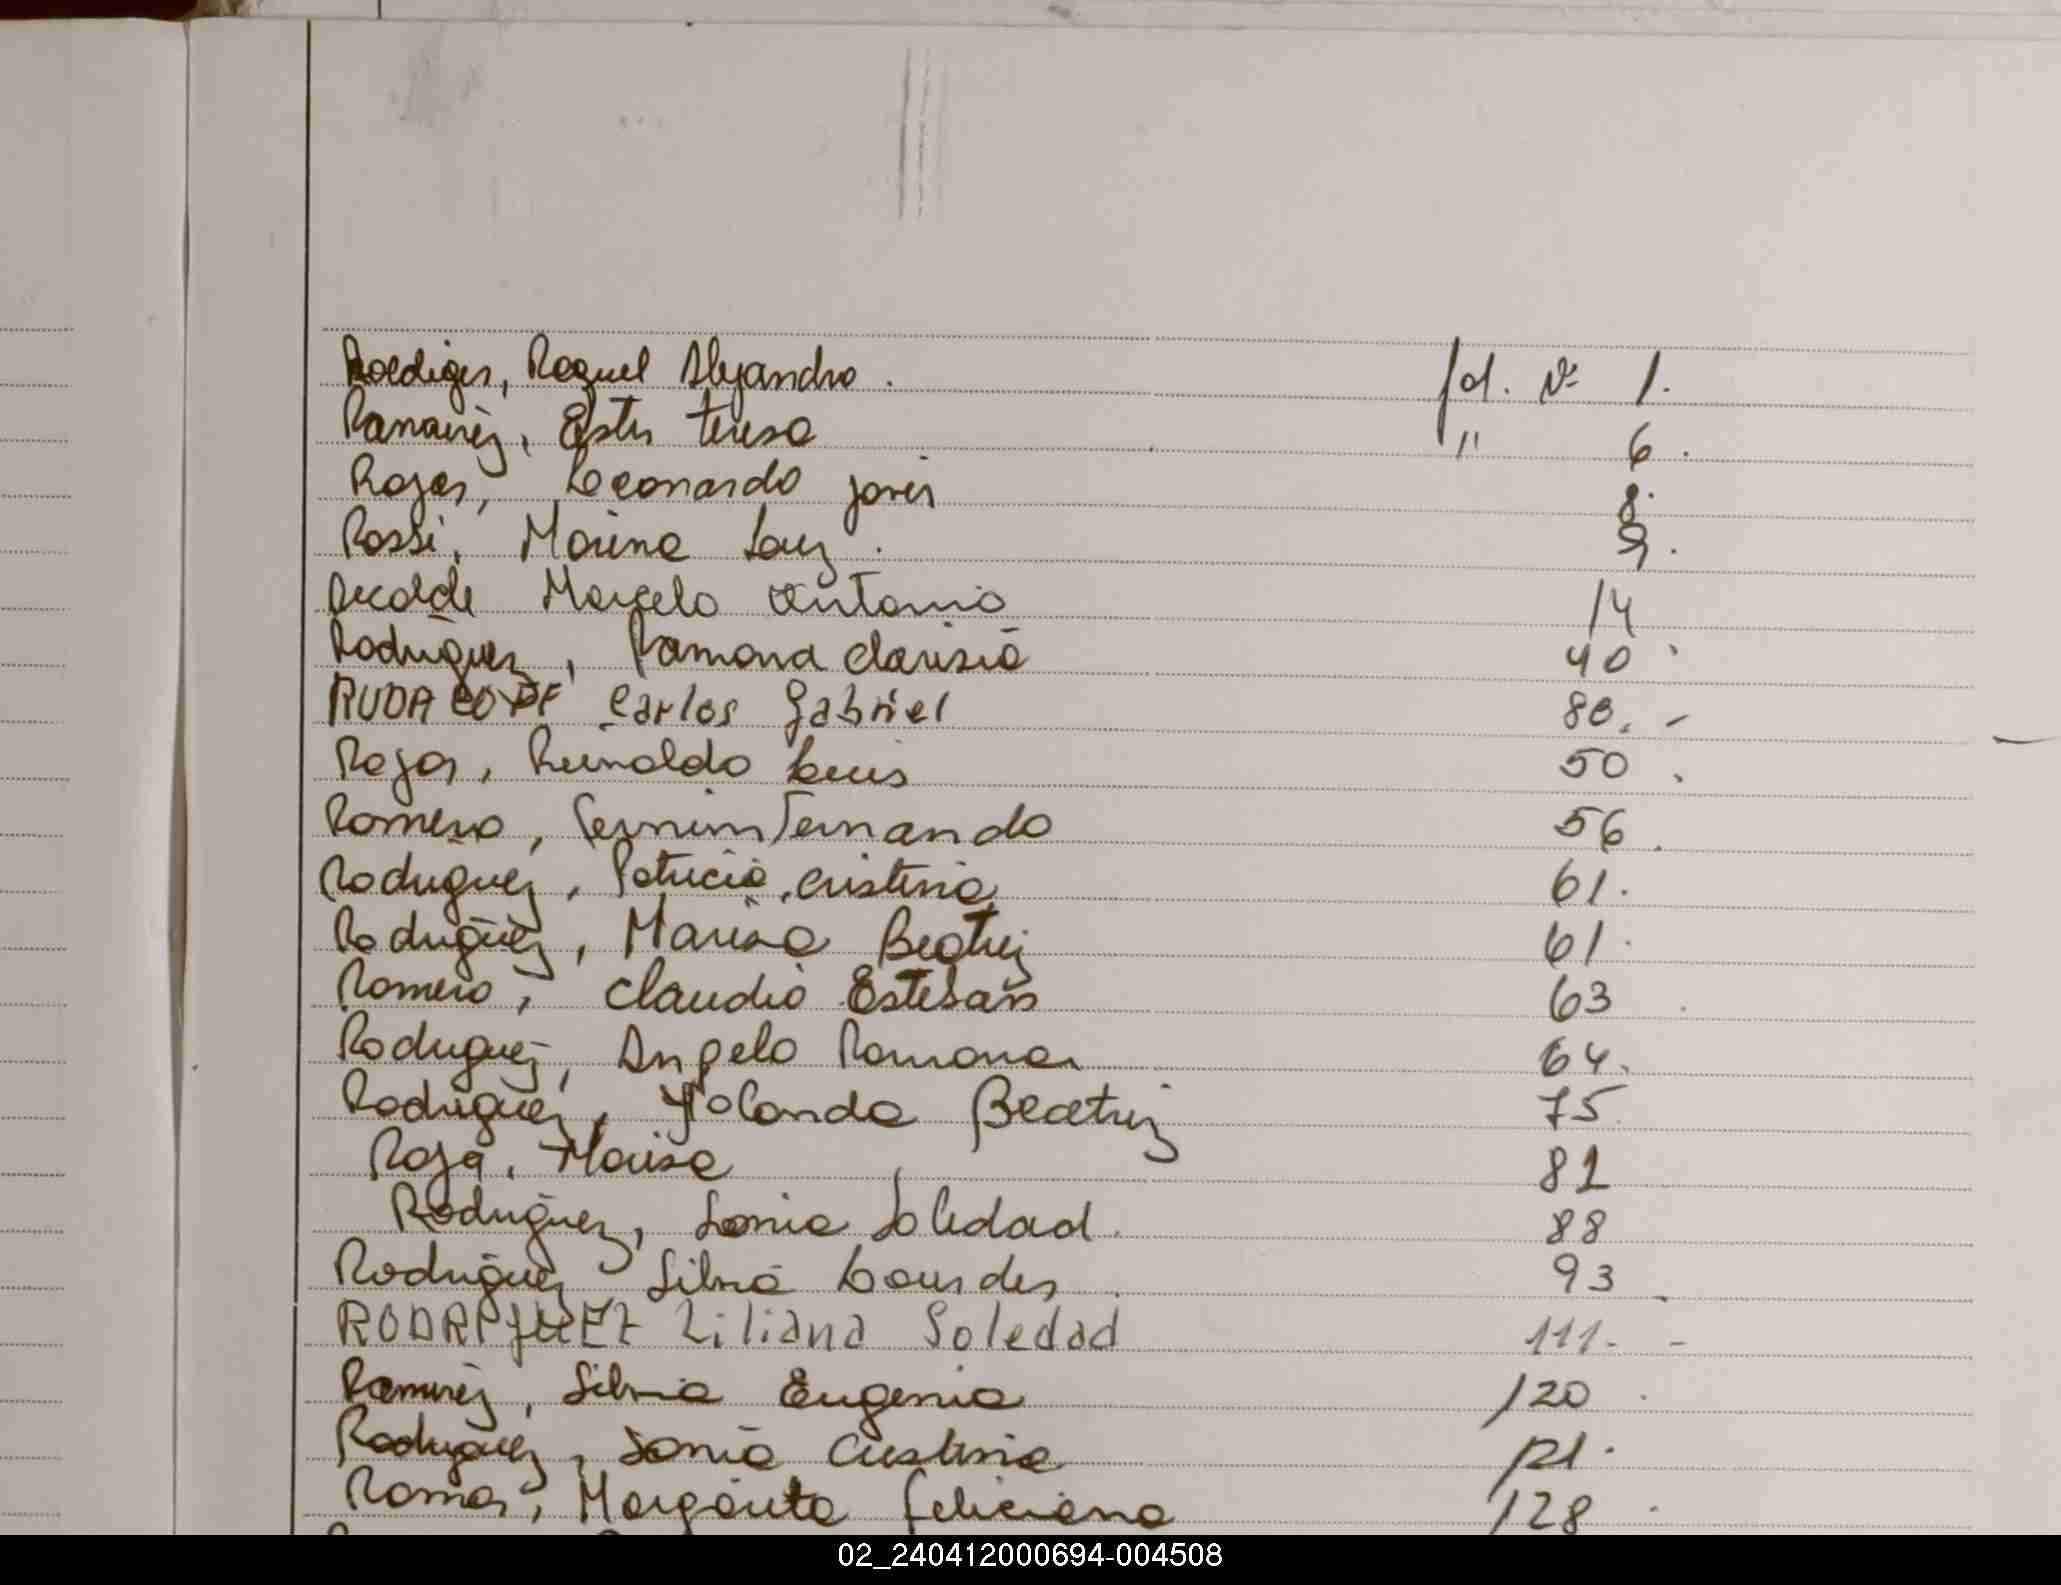 Roediger, Raquel Alejandra. fol. Nº 1.
Ramirez, Ester teresa " 6.
Rojas, Leonardo javier 8.
Rossi, Marina Luz. 9.
Marcelo Antonio 14
Rodriguez, Ramona clarisia 40
RUDA Carlos Gabriel 80. -
Rojas, Reinaldo Luis 50.
Romero, Fermin Fernando 56.
Rodriguez, Patricia cristina 61.
Rodriguez, Marisa Beatriz 61.
Romero, Claudio Esteban 63.
Rodriguez, Angela Ramona 64.
Rodriguez, Yolanda Beatriz 75.
Roja, Marisa 82
Rodriguez, Sonia Soledad. 88
Rodriguez Silvia Lourdes. 93.
RODRIGUEZ Liliana Soledad 111.- -
Ramirez, Silvia Eugenia 120.
Rodriguez, Sonia Cristina 121.
Ramos, Margarita feliciana 128.
02_240412000694-004508